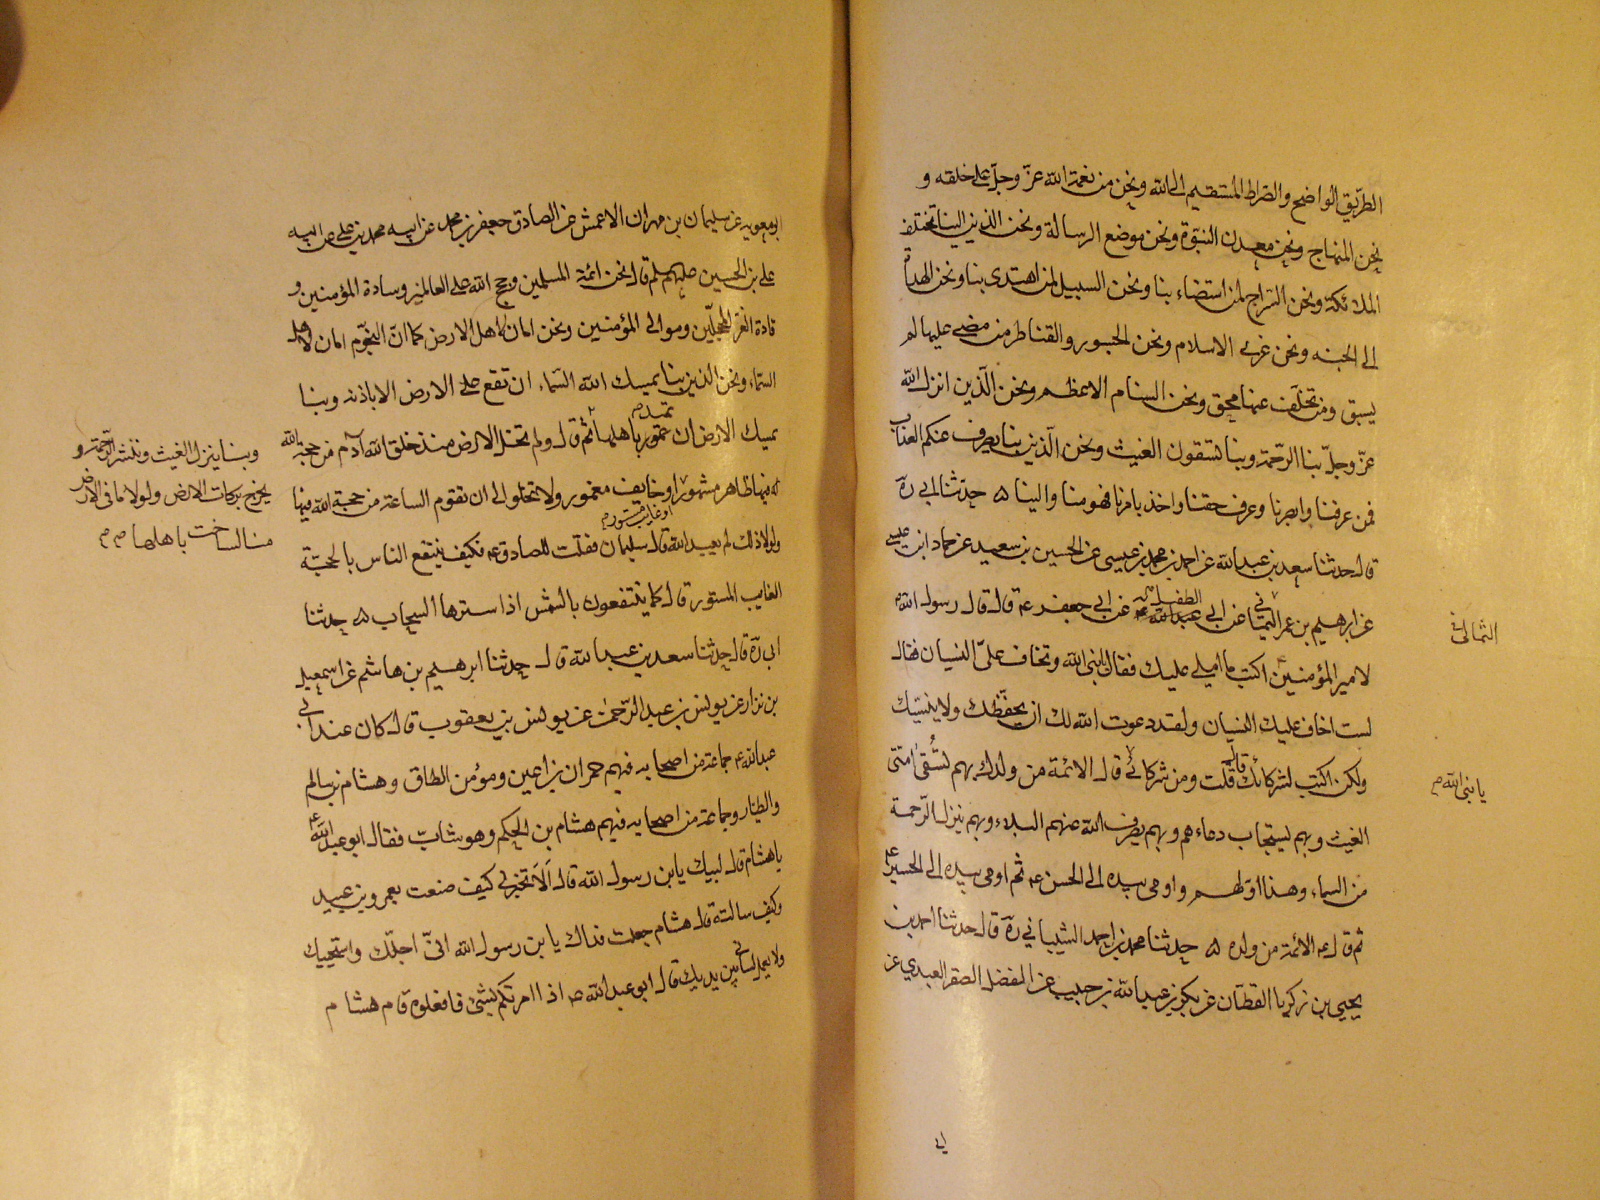 الطريق الواضح والصراط المستقيم الى الله ونحن من نعمة الله عز وجل على خلقه و
نحن المنهاج ونحن معدن النبوة ونحن موضع الرسالة ونحن الذين الينا تختلف
الملائكة ونحن السراج لمن استضاء بنا ونحن السبيل لمن اهتدى بنا ونحن الهداة
الى الجنه ونحن عرى الاسلام ونحن الجسور والقناطر من مضى عليها لم
يسبق ومن تخلف عنها محق ونحن السنام الاعظم ونحن الذين انزل الله
عز وجل بنا الرحمة وبنا تسقون الغيث ونحن الذين بنا يصرف عنكم العذاب
فمن عرفنا وابصرنا وعرف حقنا واخذ بامرنا فهو منا والينا ه حدثنا ابي ره
قال حدثنا سعد بن عبد الله عن احمد بن محمد بن عيسى عن الحسين بن سعيد عن حماد ابن عيسى
عن ابرهيم بن عمر اليماني عن ابي الطفيل عن ابي جعفر ع قال قال رسول الله
الثمالي
لامير المؤمنين اكتب ما املي عليك فقال يا نبي الله وتخاف علي النسيان فقال
لست اخاف عليك النسيان ولقد دعوت الله لك ان يحفظك ولا ينسيك
ولكن اكتب لشركائك قال قلت ومن شركائي قال الائمة من ولدك بهم تسقى امتي
يا نبي الله
الغيث وبهم يستجاب دعاءهم وبهم يصرف الله عنهم البلاء وبهم ينزل الرحمة
من السماء وهذا اولهم واومى بيده الى الحسن ع ثم اومى بيده الى الحسين ع
ثم قال ع الائمة من ولده ه حدثنا محمد بن احمد الشيباني ره قال حدثنا احمد بن
يحيى بن زكريا القطان عن بكر بن عبد الله بن حبيب عن المفضل الصقر العبدي عن
ابو معوية عن سليمان بن مهران الاعمش عن الصادق جعفر بن محمد عن ابيه محمد بن علي عن ابيه
علي بن الحسين عليهم السلم قال نحن ائمة المسلمين وحجج الله على العالمين وسادة المؤمنين و
قادة الغر المحجلين وموالي المؤمنين ونحن امان لاهل الارض كما ان النجوم امان لاهل
السماء ونحن الذين بنا يمسك الله السماء ان تقع على الارض الا باذنه وبنا
يمسك الارض ان تميد باهلها ثم قال ولم تخل الارض منذ خلق الله آدم من حجة الله
وبنا ينزل الغيث وننشر الرحمة و
يخرج بركات الارض ولولا ما في الارض
منا لساخت باهلها
له فيها ظاهر مشهور او خايف مغمور ولا تخلو الى ان تقوم الساعة من حجة الله فيها
او غايب مستور
ولولا ذلك لم يعبد الله قال سليمان فقلت للصادق ع فكيف ينتفع الناس بالحجة
الغايب المستور قال كما ينتفعون بالشمس اذا سترها السحاب ه حدثنا
ابي ره قال حدثنا سعد بن عبد الله قال حدثنا ابرهيم بن هاشم عن اسمعيل
بن نزار عن يونس بن عبد الرحمن عن يونس بن يعقوب قال كان عند ابي
عبد الله ع جماعة من اصحابه فيهم حمران بن اعين ومؤمن الطاق وهشام بن سالم
والطيار وجماعة من اصحابه فيهم هشام بن الحكم وهو شاب فقال ابو عبد الله ع
يا هشام قال لبيك يا بن رسول الله قال الا تخبرني كيف صنعت بعمرو بن عبيد
وكيف سالته قال هشام جعلت فداك يا بن رسول الله اني اجلك واستحييك
ولا يعمل لساني بين يديك قال ابو عبد الله اذا امرتكم بشئ فافعلوه قام هشام